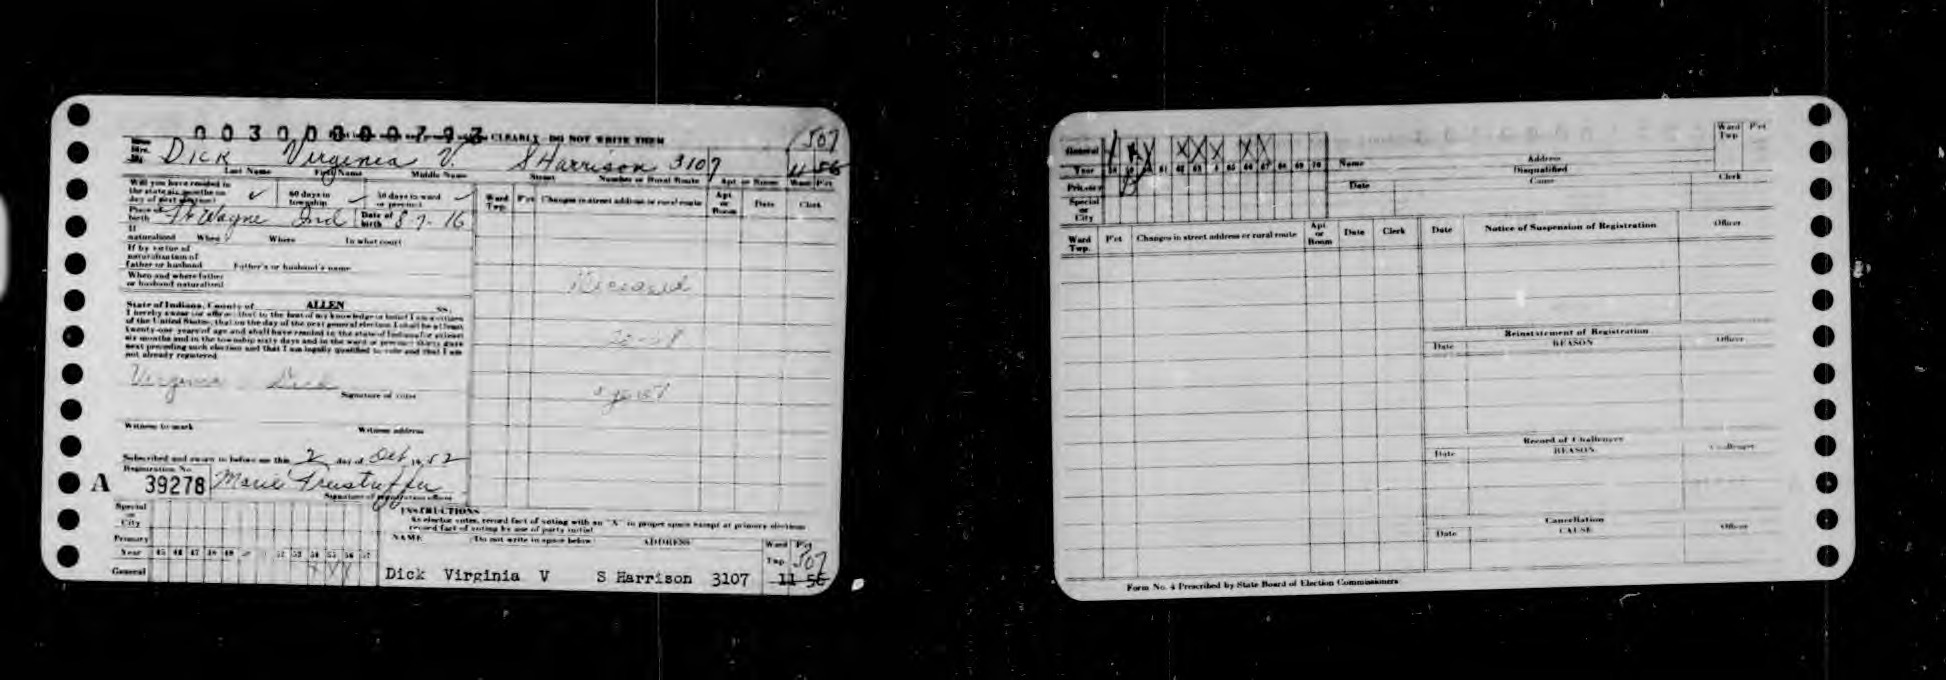 00300000793 CLEARLY DO NOT WRITE THEM
507
Mrs. Dick Virginia V. S Harrison 3107 11 56
Last Name First Name Middle Name Street Number or Rural Route Apt. or Room Ward Pct
Will you have resided in
the state six months on
day of next election?
60 days in
township
30 days in ward
or precinct
Place of
birth Ft Wayne Ind Date of
birth 8 7 16
If
naturalized When Where In what court
If by virtue of
naturalization of
father or husband Father's or husband's name
When and where father
or husband naturalized
State of Indiana, County of ALLEN SS:
I hereby swear (or affirm) that to the best of my knowledge and belief I am a citizen
of the United States, that on the day of the next general election I shall be at least
twenty-one years of age and shall have resided in the state of Indiana for at least
six months and in the township sixty days and in the ward or precinct thirty days
next preceding such election and that I am legally qualified to vote and that I am
not already registered.
Virginia Dick
Signature of voter
Witness to mark Witness address
Subscribed and sworn to before me this 2 day of Oct 1952
Registration No.
A 39278 Marie
Signature of registration officer
Ward
Twp. Pct Changes in street address or rural route Apt.
or
Room Date Clerk
Deceased
Special
or
City
Primary
Year 45 46 47 48 49 52 53 54 55 56 57
General X X X
INSTRUCTIONS
As elector votes, record fact of voting with an "X" in proper space except at primary elections
record fact of voting by use of party initial
NAME (Do not write in space below) ADDRESS Ward
Twp. Pct
507
Dick Virginia V S Harrison 3107 11 56
General X X X X X
Year 61 62 63 65 66 67 68 69 70
Primary
Special
or
City
Name Address Ward
Twp Pct
Disqualified
Date Cause Clerk
Ward
Twp. Pct Changes in street address or rural route Apt
or
Room Date Clerk
Date Notice of Suspension of Registration Officer
Reinstatement of Registration
Date REASON Officer
Record of Challenges
Date REASON Challenger
Cancellation
Date CAUSE Officer
Form No. 4 Prescribed by State Board of Election Commissioners